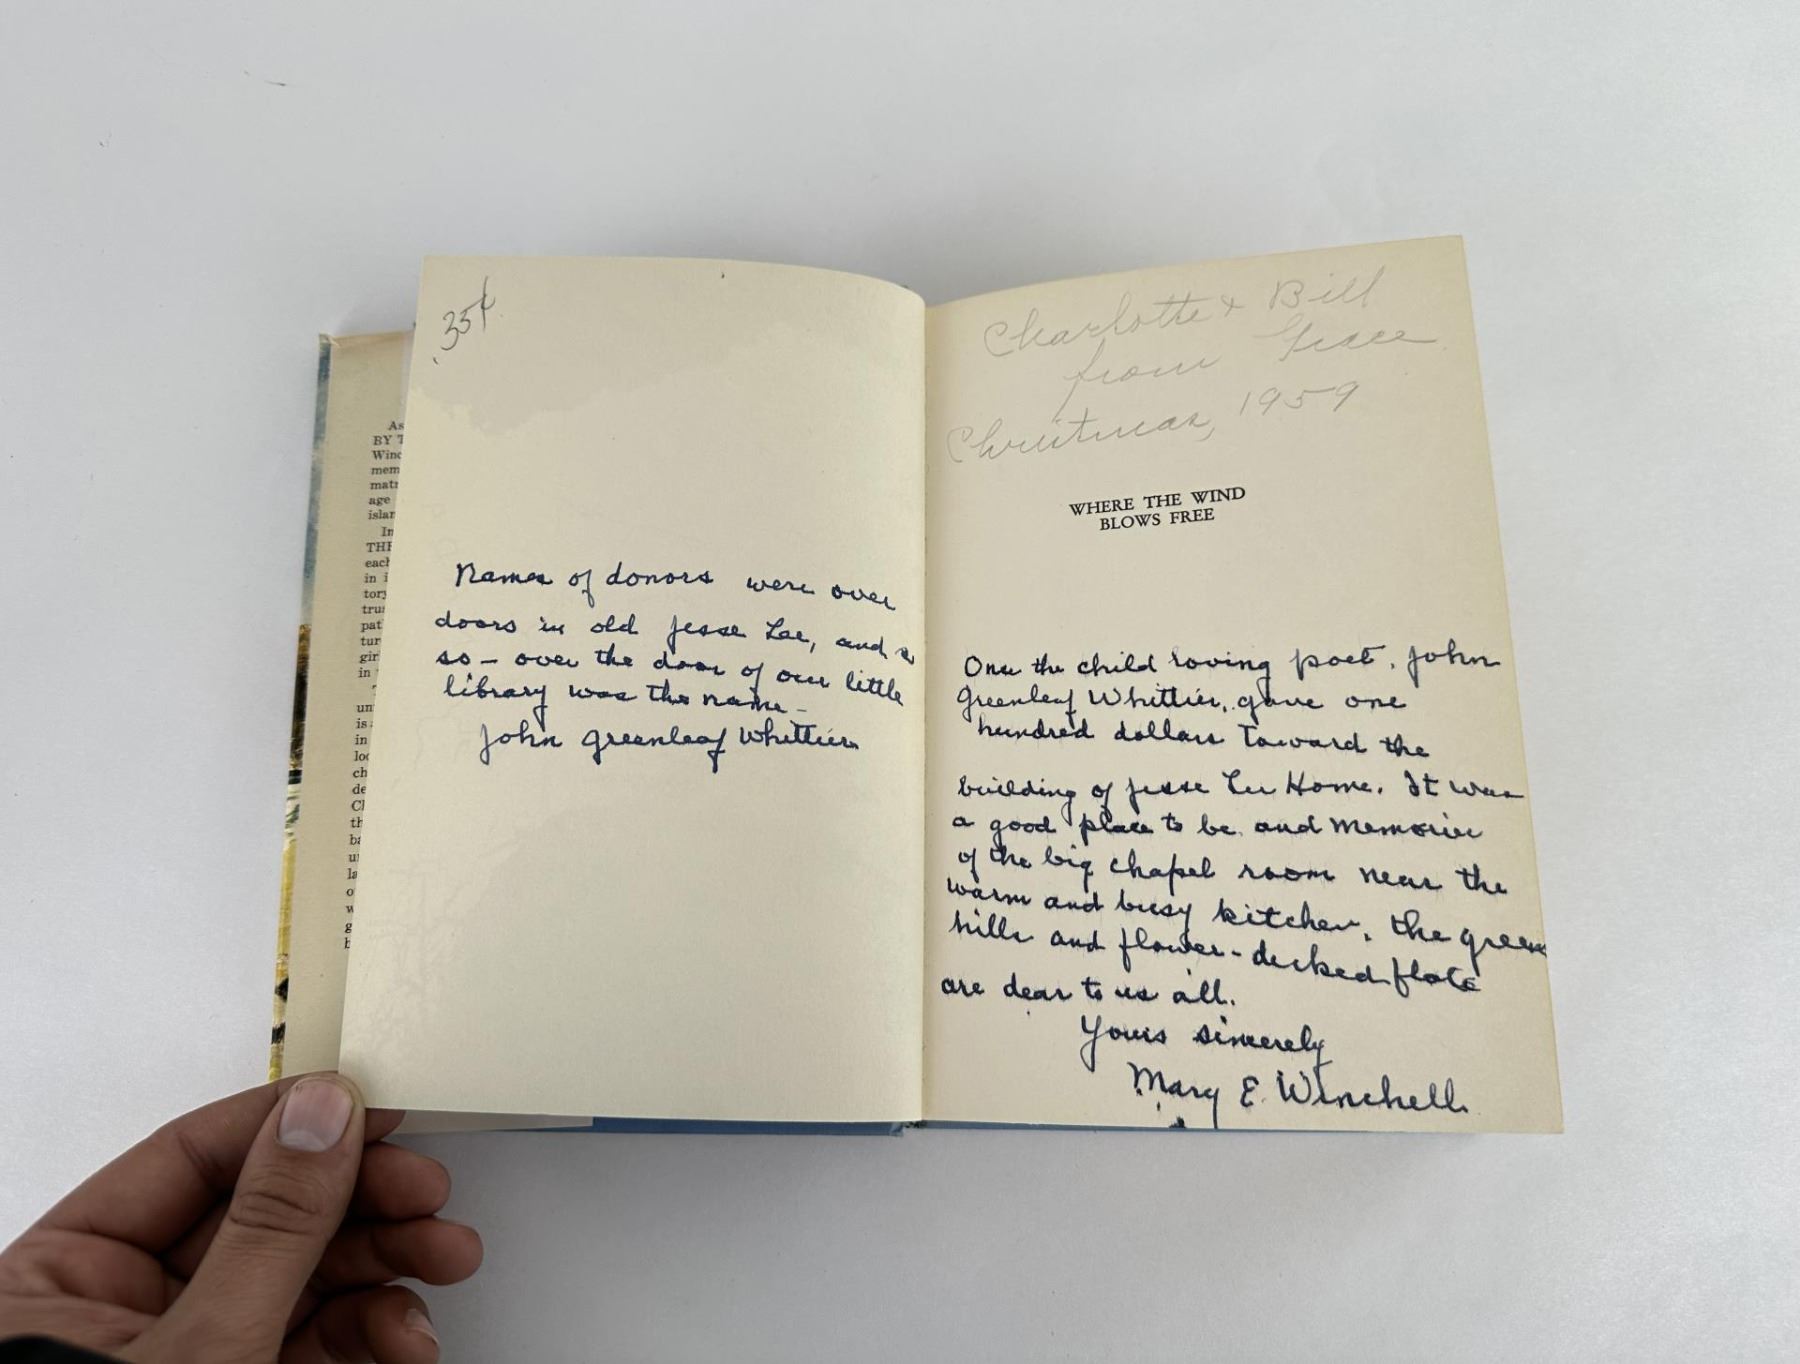 .35¢
As
BY T
Winc
mem
matr
age
islan
In
THE
each
in i
tory
trus
pat
tur
girl
in
T
un
is
in
loc
ch
de
Cl
th
ba
u
la
o
w
g
b
Names of donors were over
doors in old Jesse Lee, and
so - over the door of our little
library was the name -
John Greenleaf Whittier
Charlotte & Bill
from Grace
Christmas, 1959
WHERE THE WIND
BLOWS FREE
Once the child loving poet, John
Greenleaf Whittier, gave one
hundred dollars toward the
building of Jesse Lee Home. It was
a good place to be and memories
of the big chapel room near the
warm and busy kitchen, the green
hills and flower-decked flats
are dear to us all.
Yours sincerely
Mary E. Winchell.